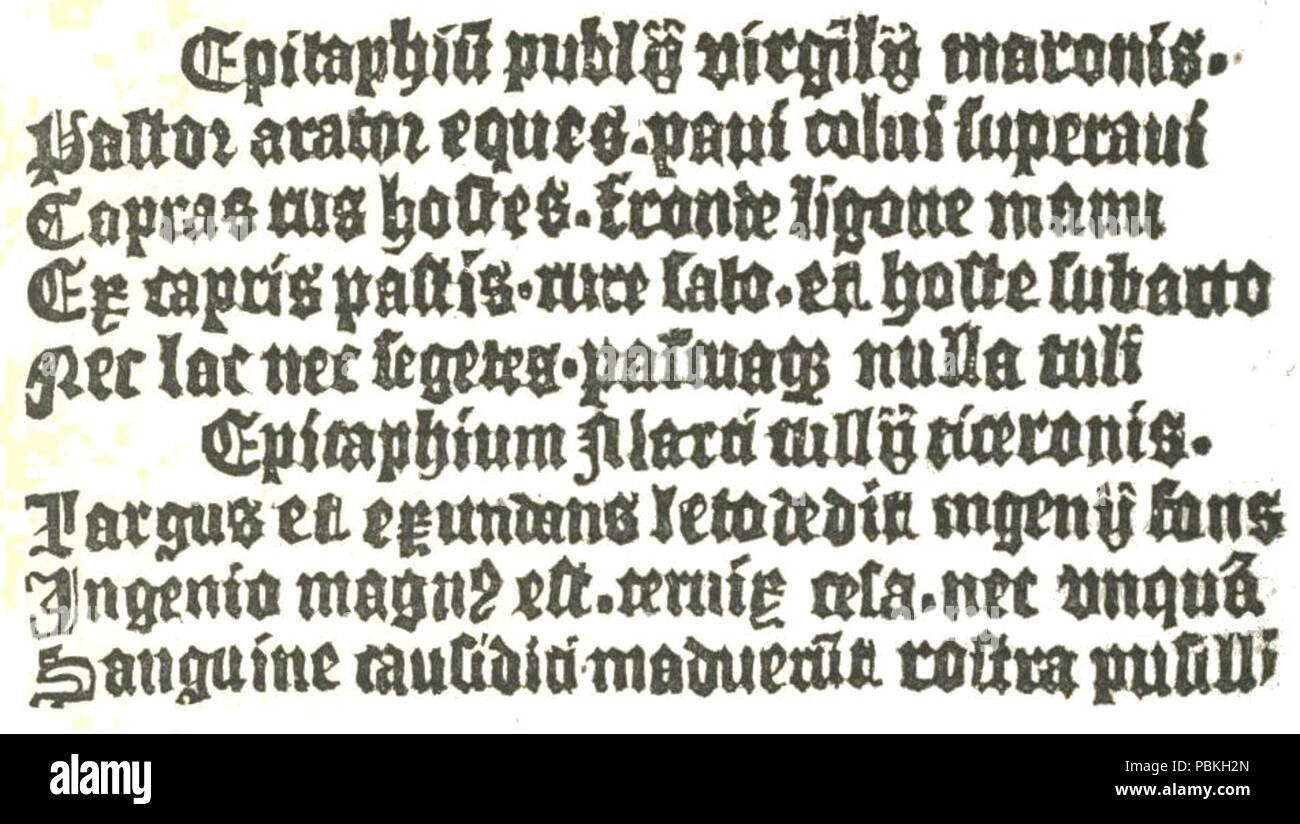 Epitaphiū publÿ virgilÿ maronis.
Pastor arator eques. paui colui superaui
Capras rus hostes. fronde ligone manu
Ex capris pastis. rure sato. et hoste subacto
Nec lac nec segetes. palmaqꝫ nulla tuli
Epitaphium Marci tullÿ ciceronis.
Largus et exundans leto dedit ingenÿ fons
Ingenio magnꝰ est. ceruix cesa. nec vnquā
Sanguine causidici maduerūt rostra pusilli
alamy
Image ID: PBKH2N
www.alamy.com